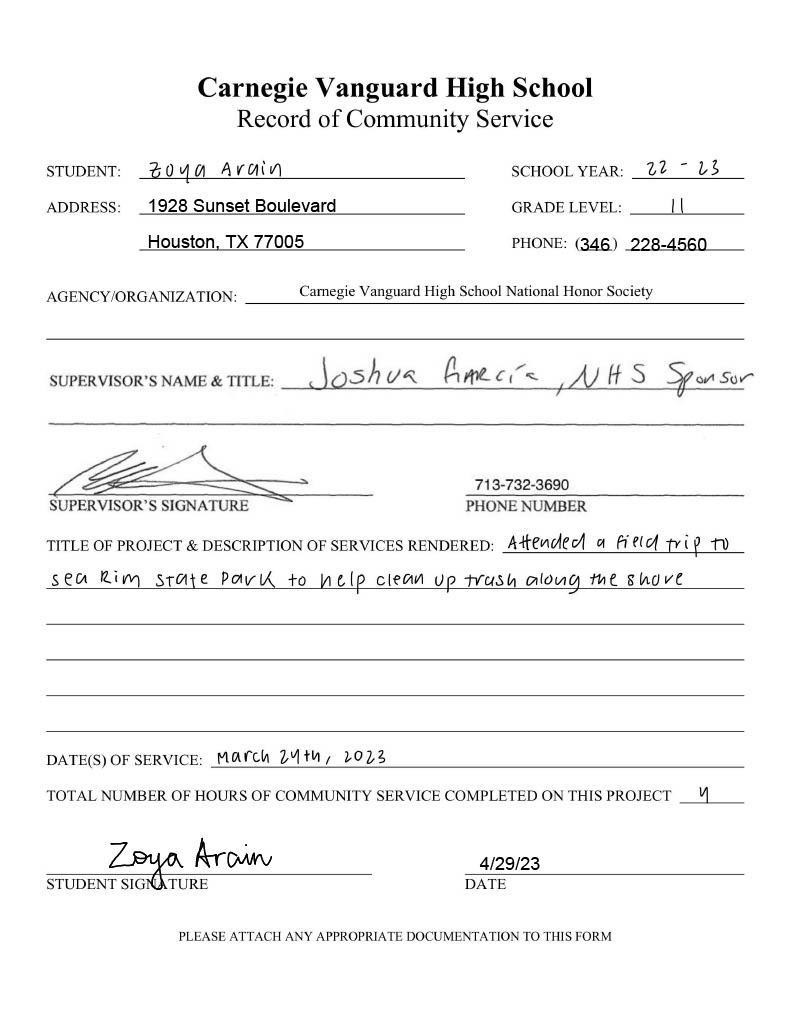 Carnegie Vanguard High School
Record of Community Service
STUDENT: Zoya Arain SCHOOL YEAR: 22 - 23
ADDRESS: 1928 Sunset Boulevard GRADE LEVEL: 11
Houston, TX 77005 PHONE: (346) 228-4560
AGENCY/ORGANIZATION: Carnegie Vanguard High School National Honor Society
SUPERVISOR'S NAME & TITLE: Joshua García, NHS Sponsor
713-732-3690
SUPERVISOR'S SIGNATURE PHONE NUMBER
TITLE OF PROJECT & DESCRIPTION OF SERVICES RENDERED: Attended a field trip to
sea Rim State Park to help clean up trash along the shore
DATE(S) OF SERVICE: March 24th, 2023
TOTAL NUMBER OF HOURS OF COMMUNITY SERVICE COMPLETED ON THIS PROJECT 4
Zoya Arain 4/29/23
STUDENT SIGNATURE DATE
PLEASE ATTACH ANY APPROPRIATE DOCUMENTATION TO THIS FORM